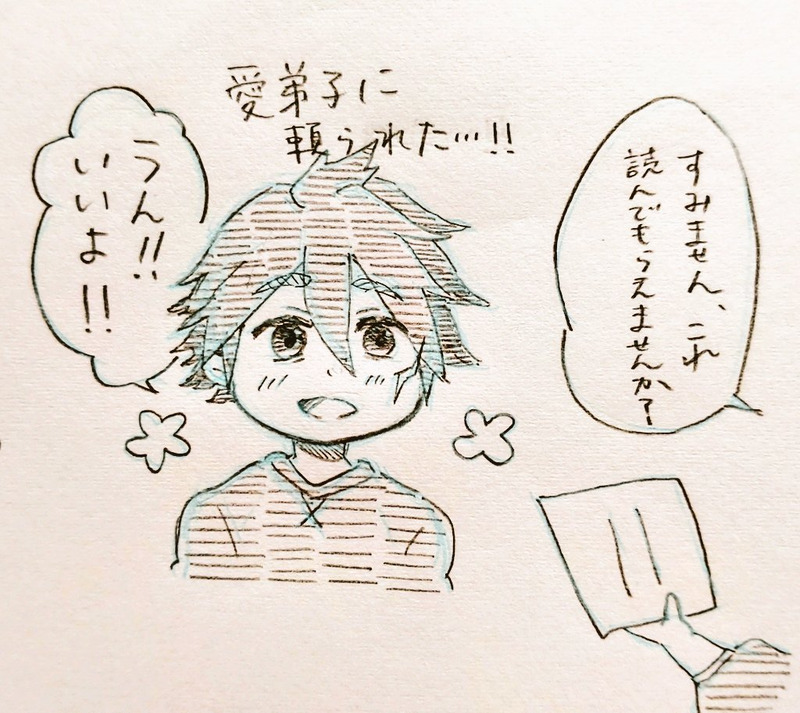 すみません、これ
読んでもらえませんか?
愛弟子に
頼られた…!!
うん!!
いいよ!!